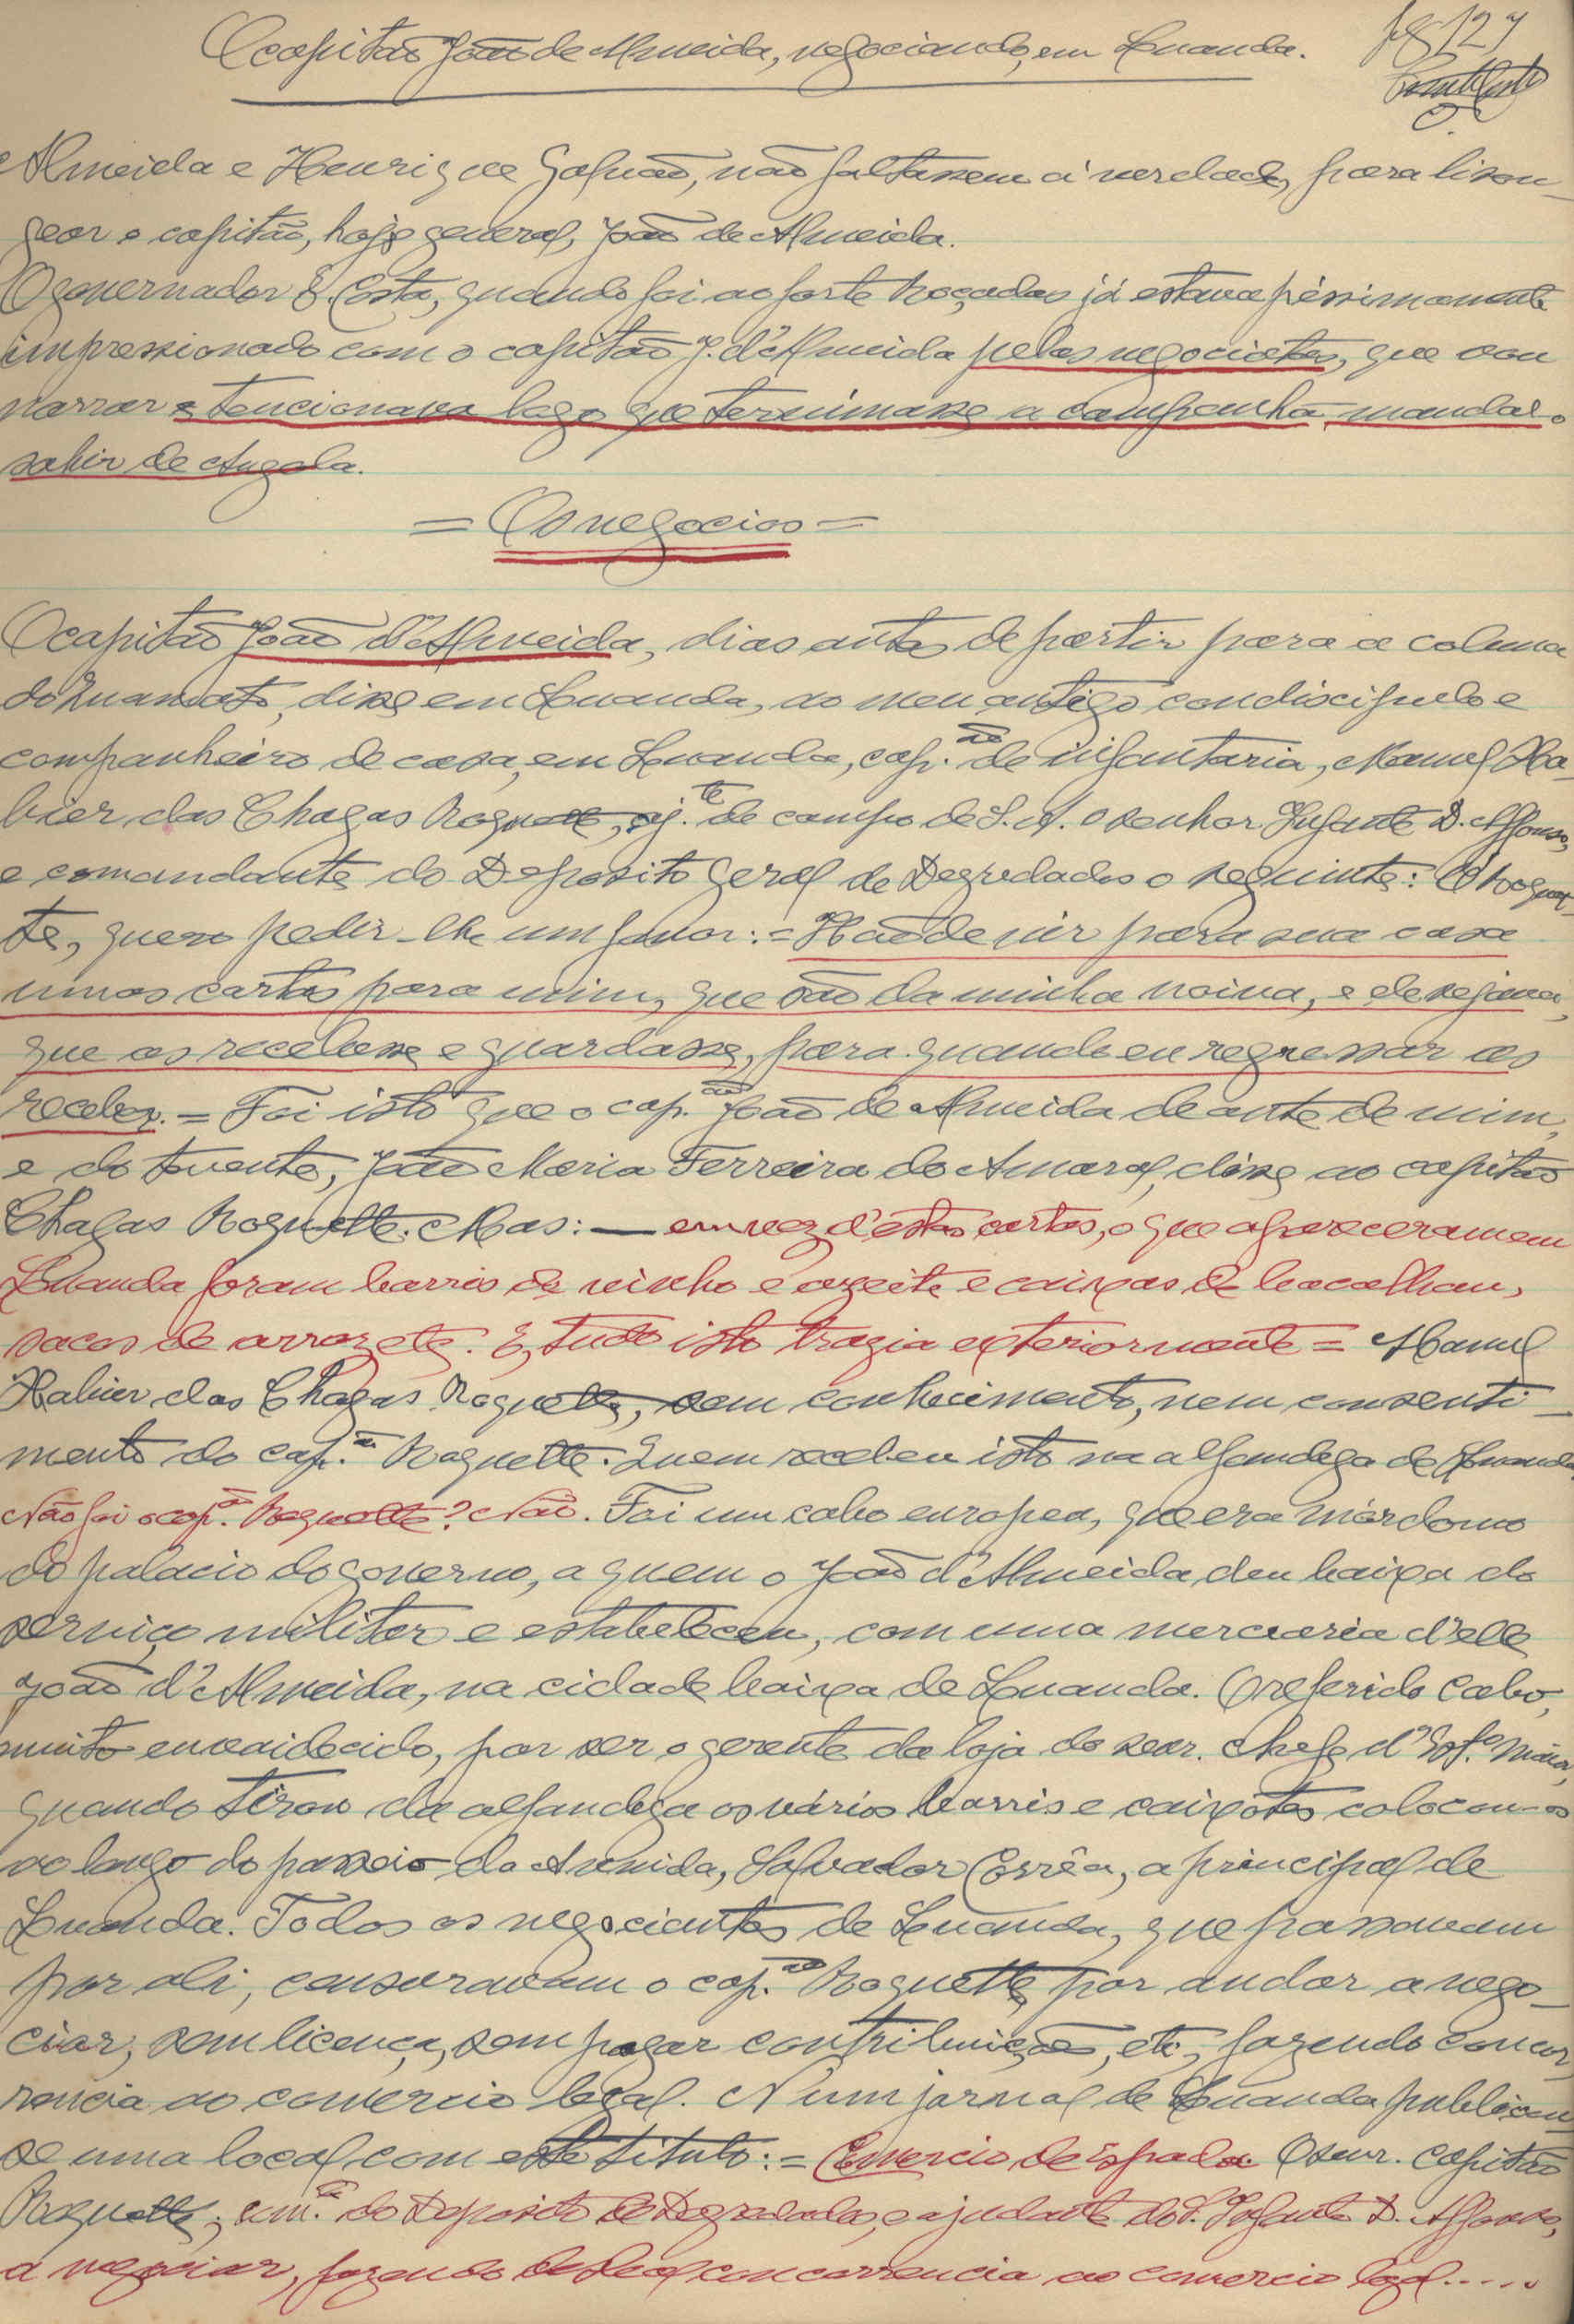 O capitão João de Almeida, negociando, em Luanda.
fg 127
Almeida e Henrique Galvão, não faltassem á verdade, para lison-
gear o capitão, hoje general, João de Almeida.
O governador E. Costa, quando foi ao forte Roçadas já estava péssimamente
impressionado com o capitão J. d'Almeida pelas negociatas, que vou
narrar e tencionava logo que terminasse a campanha, mandal-o
sahir de Angola.
= Os negocios =
O capitão João d'Almeida, dias antes de partir para a coluna
do Cuamato, disse em Luanda, ao meu antigo condiscipulo e
companheiro de casa, em Luanda, cap.ão de infantaria, Manuel Xa-
bier das Chagas Roquette, aj.te de campo de S. A. o senhor Infante D. Affonso,
e comandante do Deposito Geral de Degredados o seguinte: Ó Roquet-
te, quero pedir-lhe um favor: = Hão de vir para sua casa
umas cartas para mim, que são da minha noiva, e desejava,
que as recebesse e guardasse, para quando eu regressar as
receber. = Foi isto que o cap.ão João de Almeida deante de mim,
e do tenente, João Maria Ferreira do Amaral, disse ao capitão
Chagas Roquette. Mas: — em vez d'estas cartas, o que apareceram em
Luanda foram barris de vinho e azeite e caixas de bacalhau,
sacos de arroz etc. E, tudo isto trazia exteriormente = Manuel
Xabier das Chagas Roquette, sem conhecimento, nem consenti-
mento do cap.ão Roquette. Quem recebeu isto na alfandega de Luanda.
Não foi o cap.ão Roquette? Não. Foi um cabo europeu, que era mórdomo
do palacio do governo, a quem o João d'Almeida deu baixa do
serviço militar e estabeleceu, com uma mercearia d'elle
João d'Almeida, na cidade baixa de Luanda. O referido cabo,
muito envaidecido, por ser o gerente da loja do senr. Chefe d'Est.o Maior,
quando tirou da alfandega os vários barris e caixotes colocou-os
ao longo do passeio da Avenida, Salvador Corrêa, a principal de
Luanda. Todos os negociantes de Luanda, que passavam
por ali, censuravam o cap.ão Roquette, por andar a nego-
ciar, sem licença, sem pagar contribuições, etc, fazendo concor-
rencia ao comercio legal. N'um jornal de Luanda publicou-
se uma local com este titulo: = Comercio de Espada. O senr. capitão
Roquette, com.te do Deposito de Degredados, e ajudante do S. Infante D. Affonso,
a negociar, fazendo desleal concorrencia ao comercio legal.....